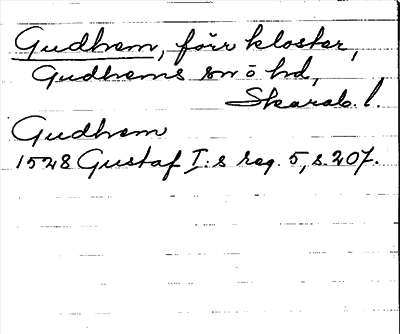 Gudhem, förr kloster,
Gudhems sn ö hd,
Skarab. l.
Gudhem
1528 Gustaf I:s reg. 5, s. 207.